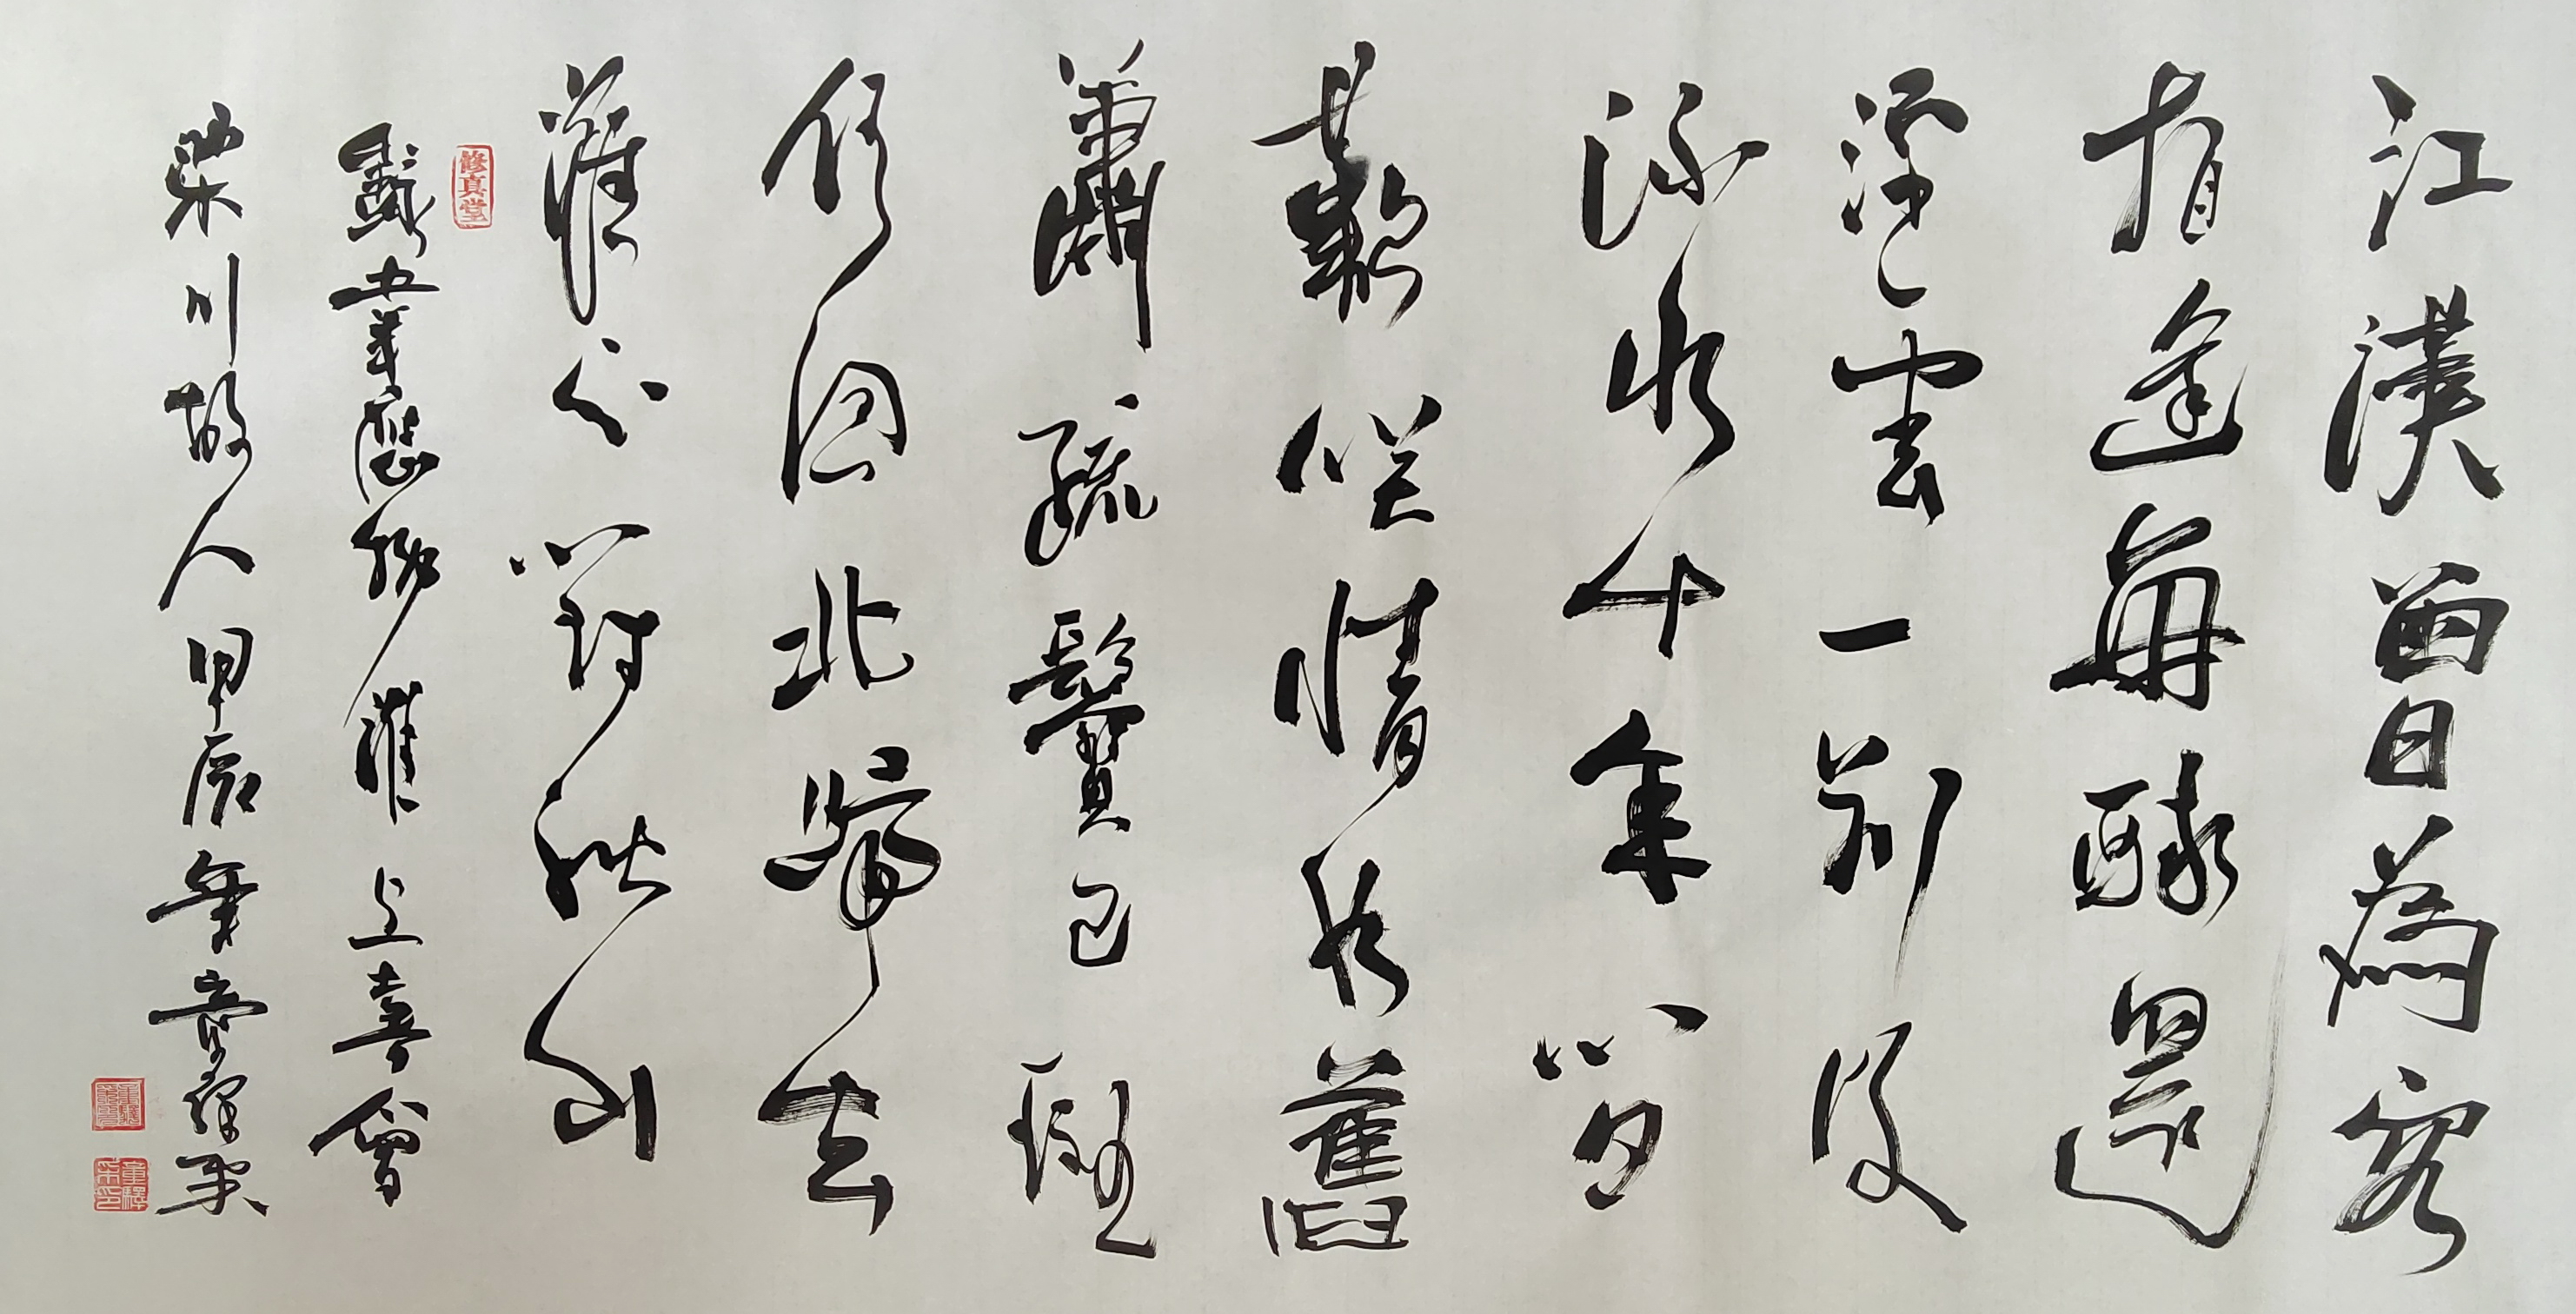 江漢曾為客
相逢每醉還
浮雲一別後
流水十年間
歡咲情如舊
蕭疏鬢已斑
何因北歸去
淮上對秋山
修真堂
韋應物淮上喜會
梁川故人甲辰年童驛采